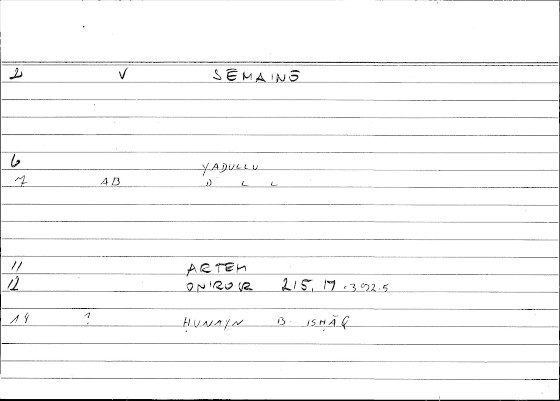 2 V SĒMAINŌ
6 YADULLU
7 AB D L L
11 ARTEM
12 ONIROCR 215, 17 · 392.5
14 ? ḤUNAYN B. ISḤĀQ